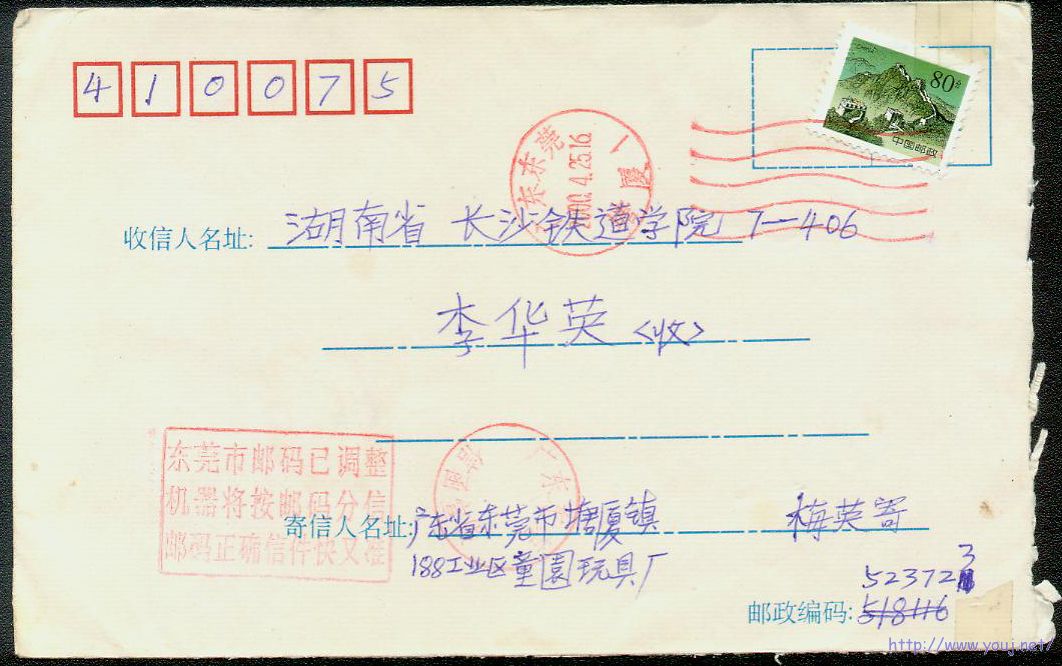 410075
80分
中国邮政
广东东莞
2000.4.25.16
塘厦
收信人名址: 湖南省 长沙铁道学院 7-406
李华英 <收>
东莞市邮码已调整
机器将按邮码分信
邮码正确信件快又准
广东
寄信人名址: 广东省东莞市塘厦镇 梅英寄
188工业区童園玩具厂
523723
邮政编码: 518116
http://www.youj.net/